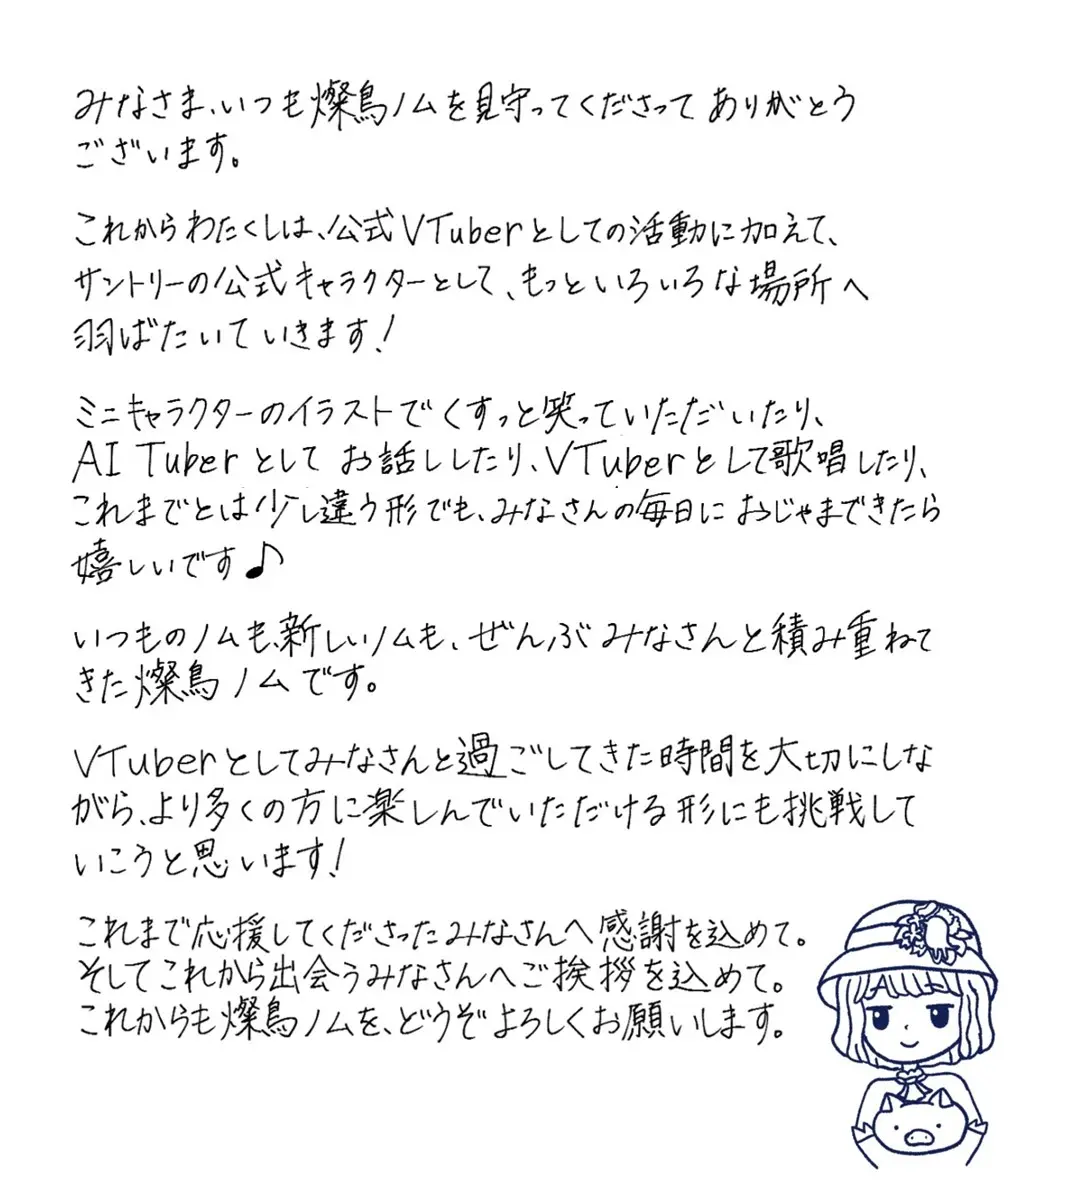 みなさま、いつも燦鳥ノムを見守ってくださってありがとう
ございます。
これからわたくしは、公式VTuberとしての活動に加えて、
サントリーの公式キャラクターとして、もっといろいろな場所へ
羽ばたいていきます!
ミニキャラクターのイラストでくすっと笑っていただいたり、
AI Tuberとしてお話ししたり、VTuberとして歌唱したり、
これまでとは少し違う形でも、みなさんの毎日におじゃまできたら
嬉しいです♪
いつものノムも、新しいノムも、ぜんぶみなさんと積み重ねて
きた燦鳥ノムです。
VTuberとしてみなさんと過ごしてきた時間を大切にしな
がら、より多くの方に楽しんでいただける形にも挑戦して
いこうと思います!
これまで応援してくださったみなさんへ感謝を込めて。
そしてこれから出会うみなさんへご挨拶を込めて。
これからも燦鳥ノムを、どうぞよろしくお願いします。